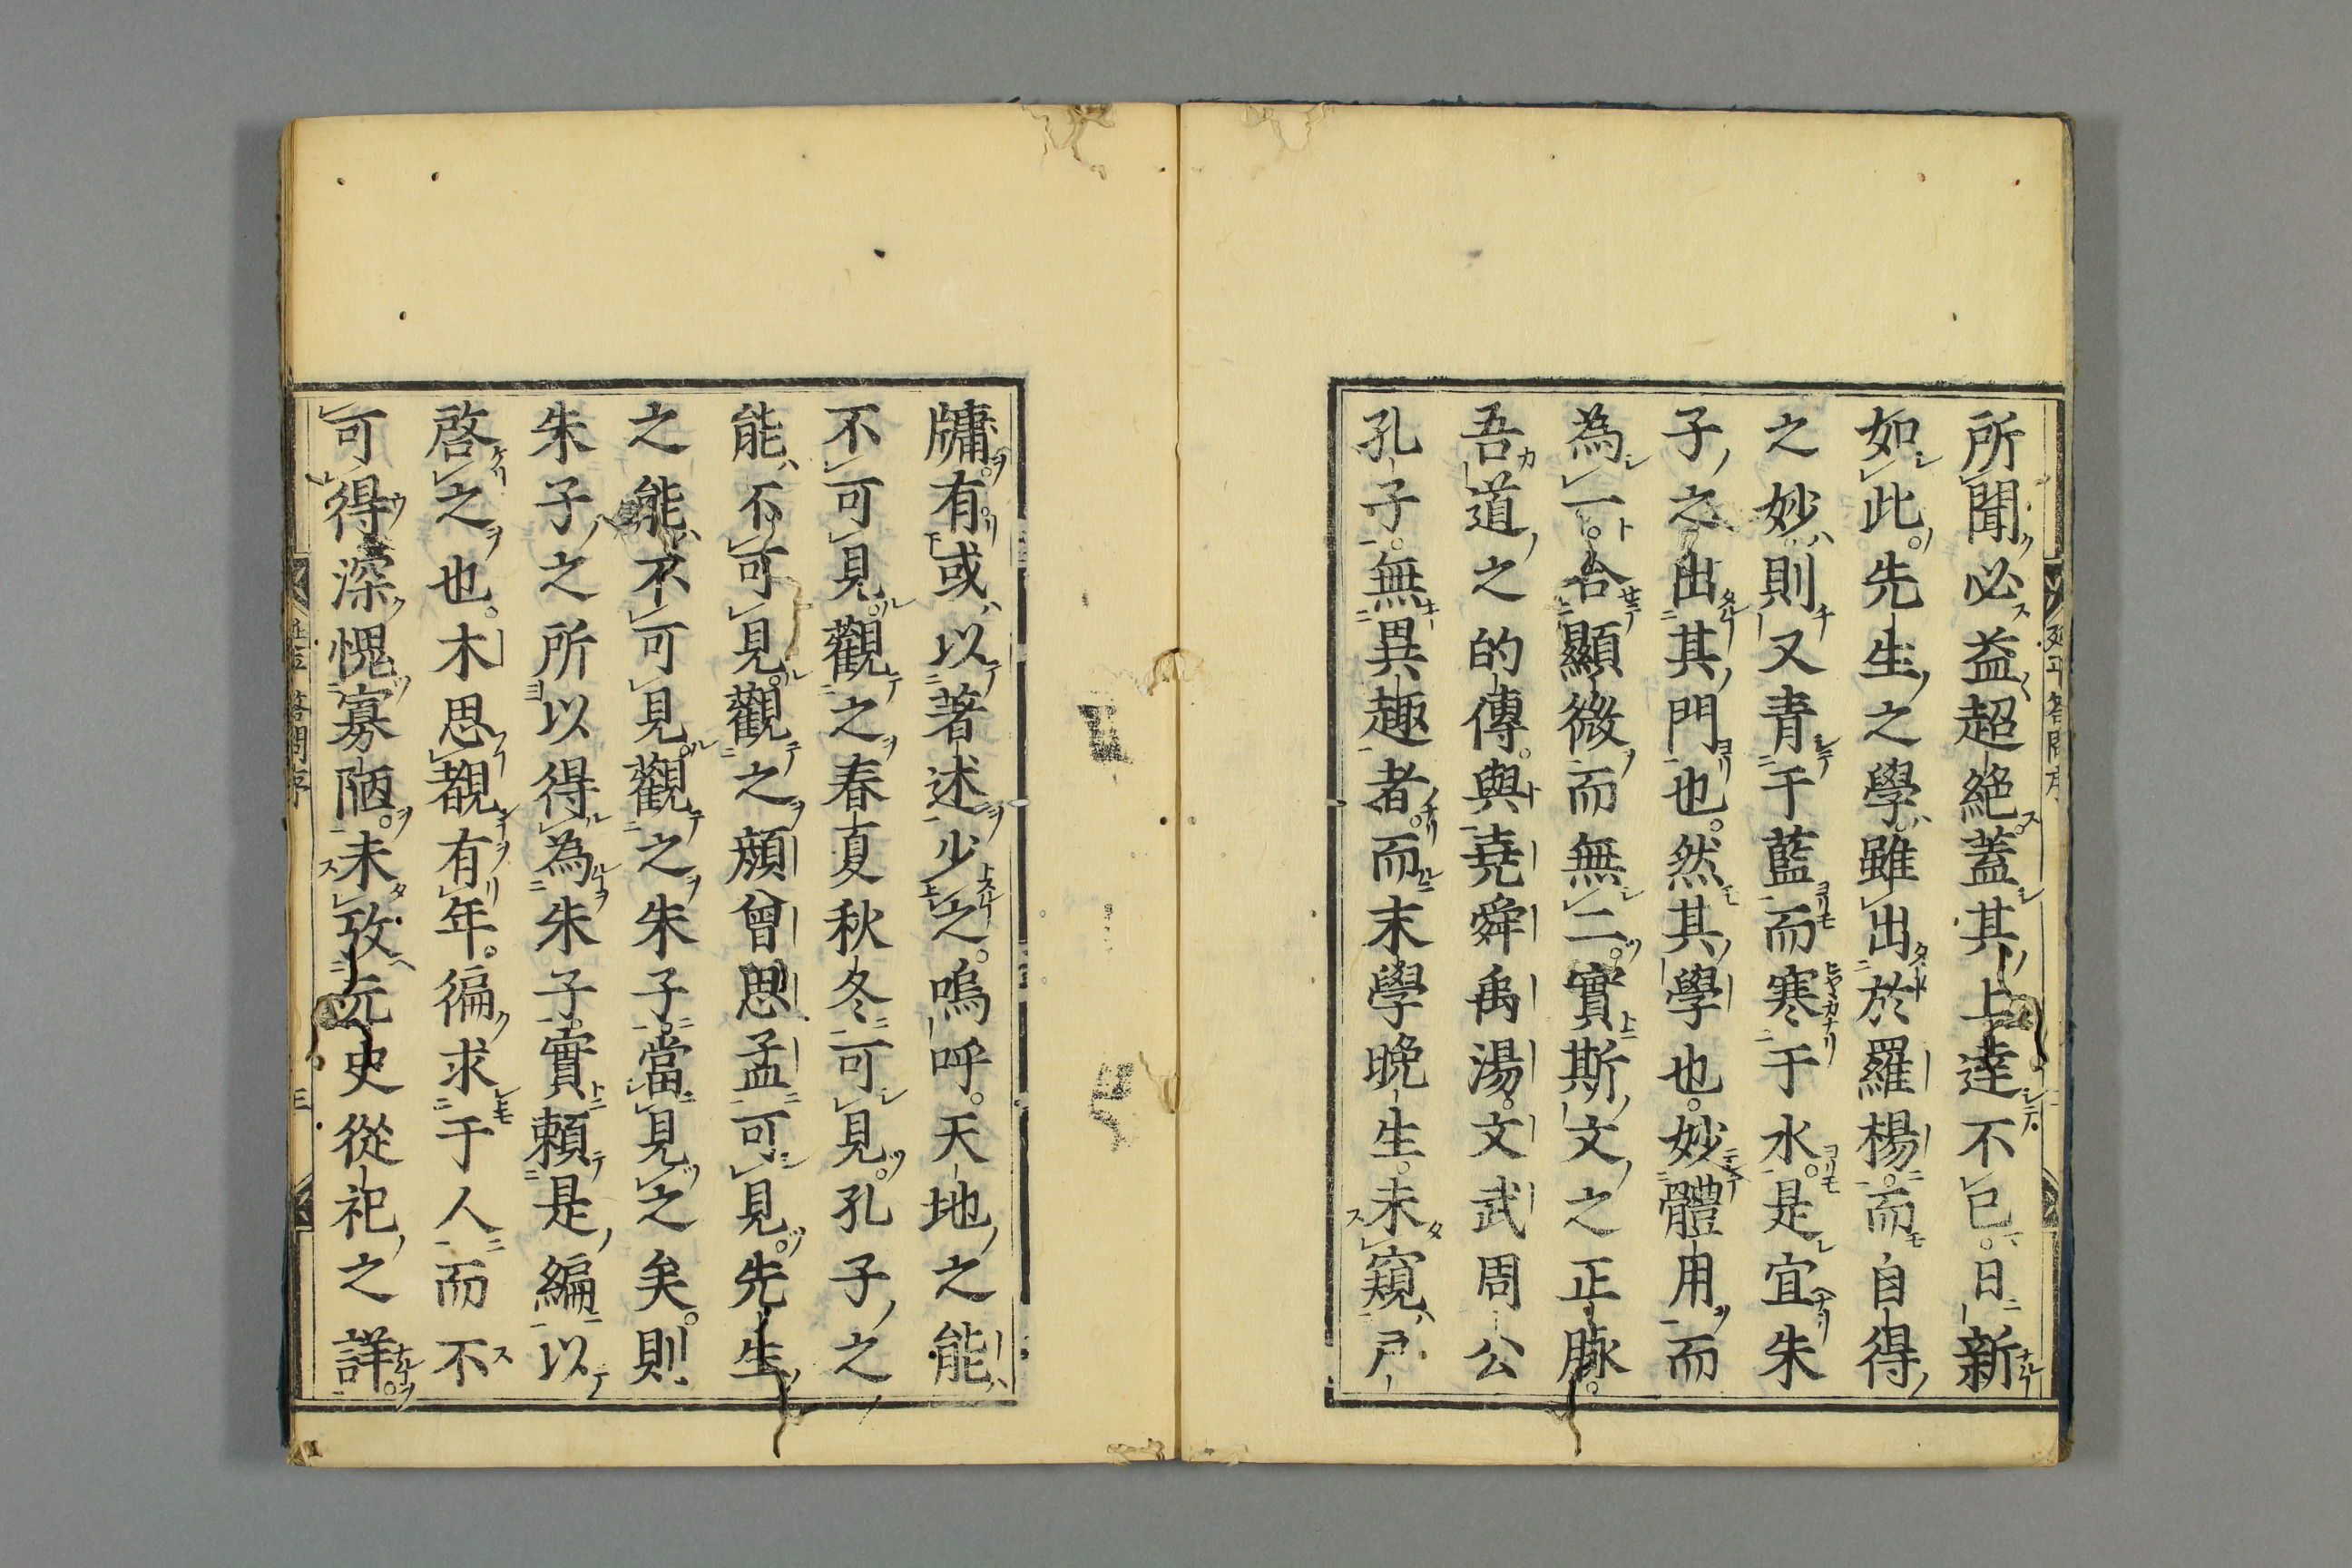 所聞必益超絶蓋其上達不已日新
如此先生之學雖出於羅楊而自得
之妙則又青于藍而寒于水是宜朱
子之出其門也然其學也妙體用而
為一合顯微而無二實斯文之正脉
吾道之的傳與堯舜禹湯文武周公
孔子無異趣者而末學晚生未窺戸
牗有或以著述少之嗚呼天地之能
不可見觀之春夏秋冬可見孔子之
能不可見觀之顔曾思孟可見先生
之能不可見觀之朱子當見之矣則
朱子之所以得為朱子實頼是編以
啓之也木思覩有年徧求于人而不
可得深愧寡陋未攷元史從祀之詳